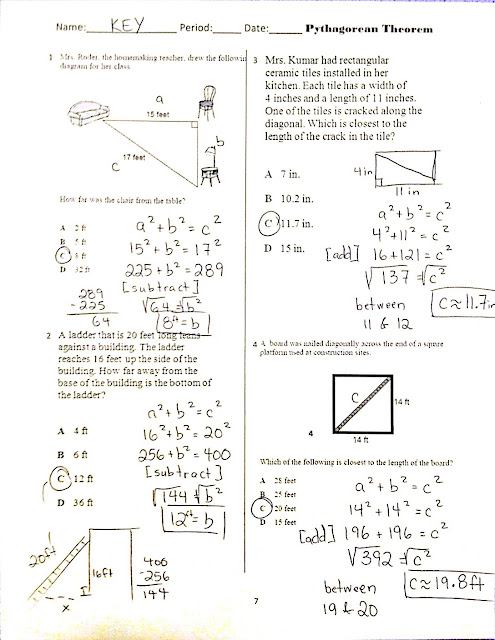 Name: KEY Period: Date: Pythagorean Theorem
1 Mrs. Roder, the homemaking teacher, drew the followin
diagram for her class.
a
15 feet
b
17 feet
c
How far was the chair from the table?
A 2 ft
B 5 ft
C 8 ft
D 32 ft
a² + b² = c²
15² + b² = 17²
225 + b² = 289
[subtract]
√64 = √b²
8ft = b
289
- 225
64
2 A ladder that is 20 feet long leans
against a building. The ladder
reaches 16 feet up the side of the
building. How far away from the
base of the building is the bottom of
the ladder?
A 4 ft
B 6 ft
C 12 ft
D 36 ft
a² + b² = c²
16² + b² = 20²
256 + b² = 400
[subtract]
√144 = √b²
12ft = b
20ft
16ft
x
400
- 256
144
3 Mrs. Kumar had rectangular
ceramic tiles installed in her
kitchen. Each tile has a width of
4 inches and a length of 11 inches.
One of the tiles is cracked along the
diagonal. Which is closest to the
length of the crack in the tile?
A 7 in.
B 10.2 in.
C 11.7 in.
D 15 in.
4 in
11 in
a² + b² = c²
4² + 11² = c²
[add] 16 + 121 = c²
√137 = √c²
between
11 & 12
C ≈ 11.7in
4 A board was nailed diagonally across the end of a square
platform used at construction sites.
C
14 ft
4
14 ft
Which of the following is closest to the length of the board?
A 28 feet
B 25 feet
C 20 feet
D 15 feet
a² + b² = c²
14² + 14² = c²
[add] 196 + 196 = c²
√392 = √c²
between
19 & 20
C ≈ 19.8ft
7